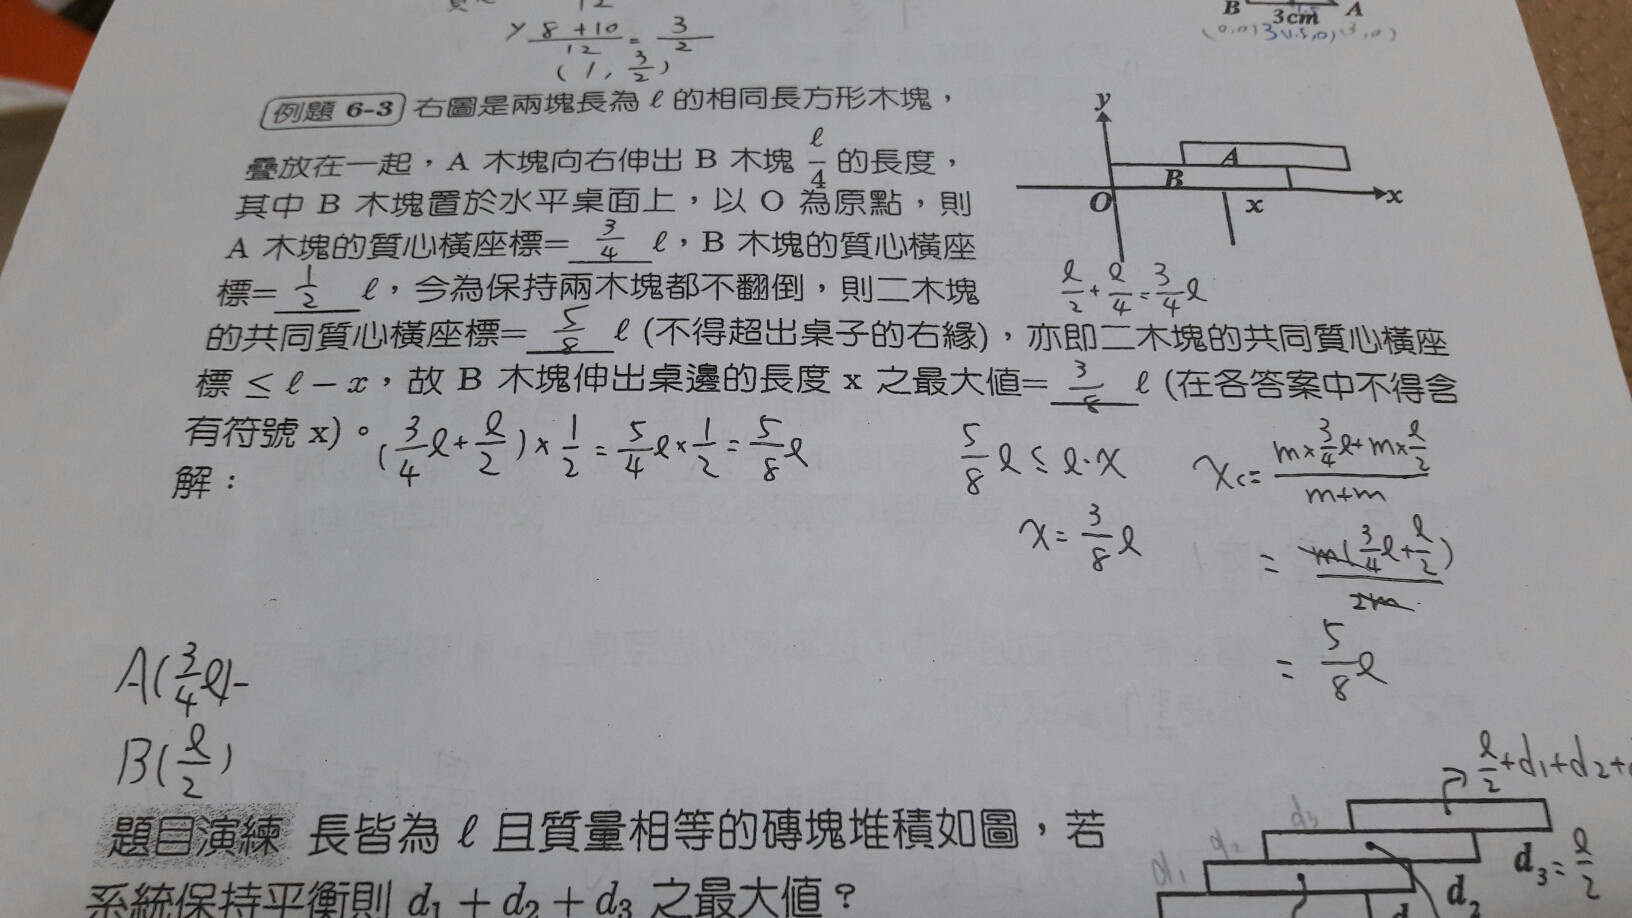 12
y 8+10/12 = 3/2
(1, 3/2)
B 3cm A
例題 6-3 右圖是兩塊長為 ℓ 的相同長方形木塊，
疊放在一起，A 木塊向右伸出 B 木塊 ℓ/4 的長度，
其中 B 木塊置於水平桌面上，以 O 為原點，則
A 木塊的質心橫座標= 3/4 ℓ，B 木塊的質心橫座
標= 1/2 ℓ，今為保持兩木塊都不翻倒，則二木塊
的共同質心橫座標= 5/8 ℓ (不得超出桌子的右緣)，亦即二木塊的共同質心橫座
標 ≤ ℓ − x，故 B 木塊伸出桌邊的長度 x 之最大值= 3/8 ℓ (在各答案中不得含
有符號 x)。
y
A
B
O x x
ℓ/2 + ℓ/4 = 3/4 ℓ
(3/4 ℓ + ℓ/2) × 1/2 = 5/4 ℓ × 1/2 = 5/8 ℓ
解：
5/8 ℓ ≤ ℓ-x
x = 3/8 ℓ
xc = m×3/4 ℓ + m×ℓ/2 / m+m
= m(3/4 ℓ + ℓ/2) / 2m
= 5/8 ℓ
A(3/4 ℓ)-
B(ℓ/2)
題目演練 長皆為 ℓ 且質量相等的磚塊堆積如圖，若
系統保持平衡則 d1 + d2 + d3 之最大值？
ℓ/2 + d1 + d2 +
d3
d2
d1
d3 = ℓ/2
d2